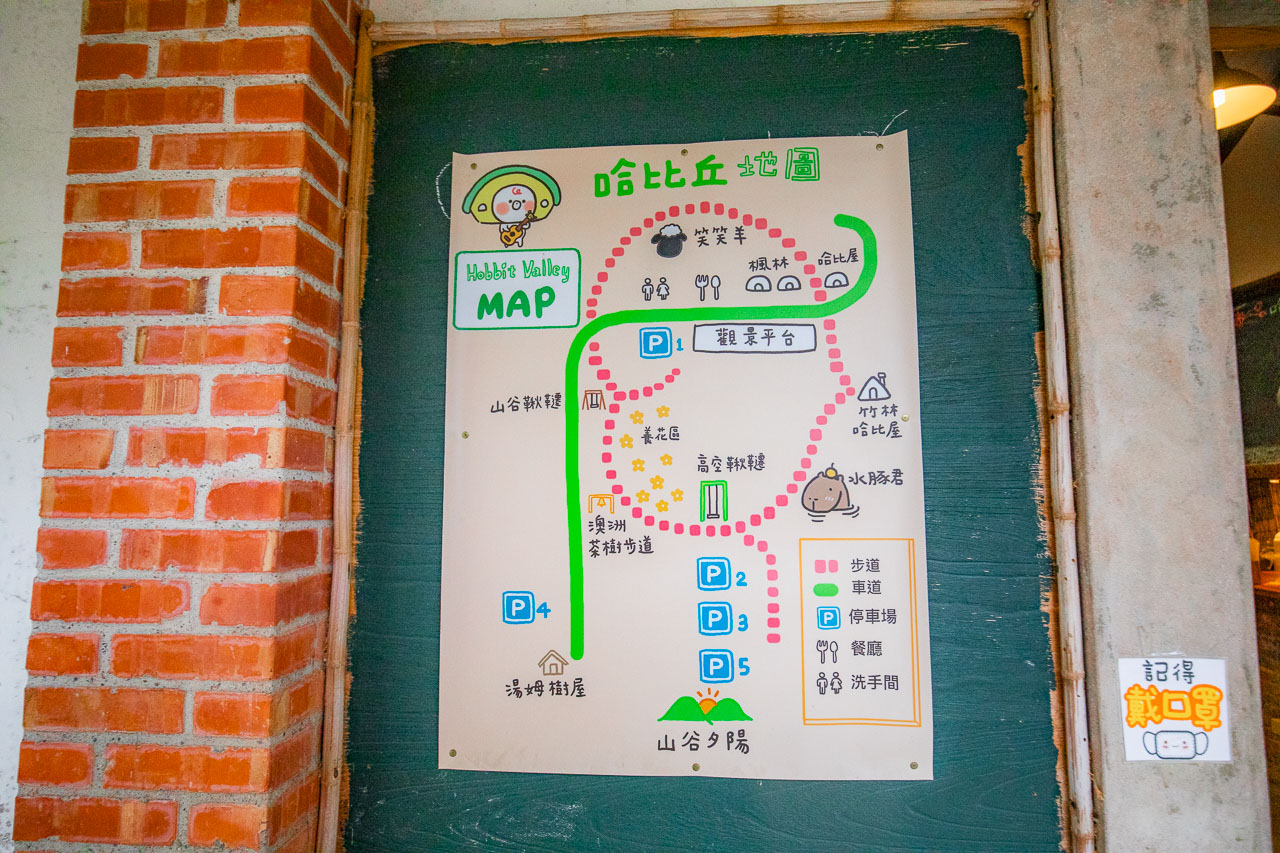 哈比丘地圖
Hobbit Valley
MAP
笑笑羊
楓林
哈比屋
P 1
觀景平台
山谷鞦韆
竹林
哈比屋
養花區
高空鞦韆
水豚君
澳洲
茶樹步道
P 2
P 3
P 4
P 5
湯姆樹屋
山谷夕陽
步道
車道
P 停車場
餐廳
洗手間
記得
戴口罩